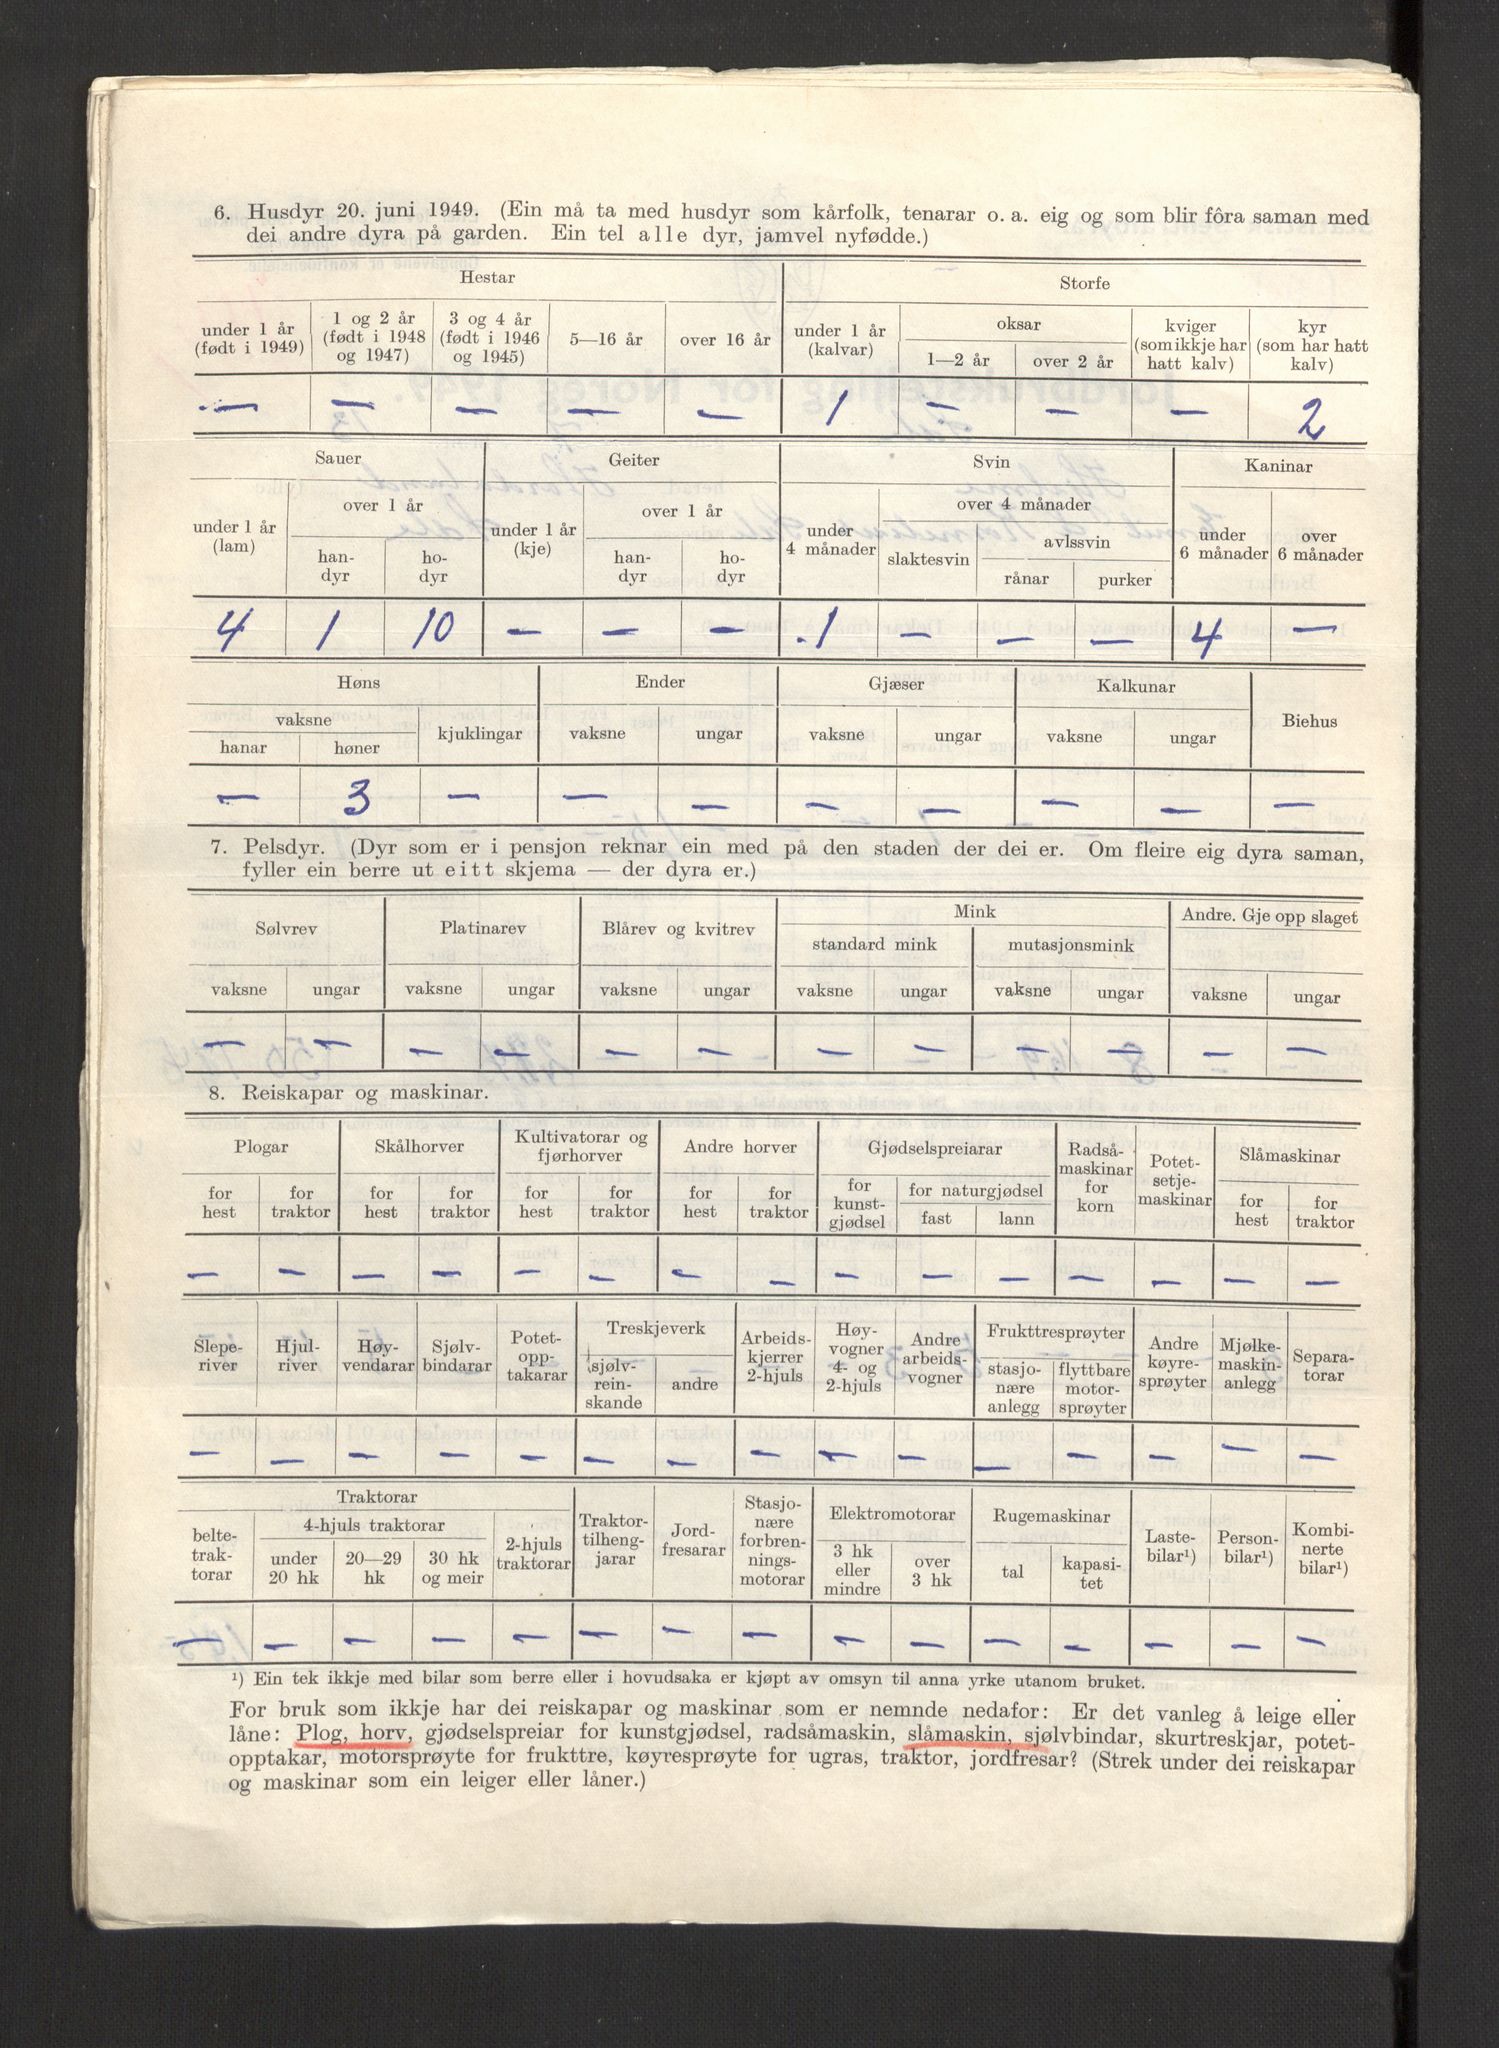 6. Husdyr 20. juni 1949. (Ein må ta med husdyr som kårfolk, tenarar o. a. eig og som blir fôra saman med
dei andre dyra på garden. Ein tel alle dyr, jamvel nyfødde.)
Hestar Storfe
under 1 år (født i 1949) 1 og 2 år (født i 1948 og 1947) 3 og 4 år (født i 1946 og 1945) 5—16 år over 16 år under 1 år (kalvar) oksar 1—2 år over 2 år kviger (som ikkje har hatt kalv) kyr (som har hatt kalv)
— — — — — 1 — — — 2
Sauer Geiter Svin Kaninar
under 1 år (lam) over 1 år han-dyr ho-dyr under 1 år (kje) over 1 år han-dyr ho-dyr under 4 månader over 4 månader slaktesvin avlssvin rånar purker under 6 månader over 6 månader
4 1 10 — — — 1 — — — 4 —
Høns Ender Gjæser Kalkunar Biehus
vaksne hanar høner kjuklingar vaksne ungar vaksne ungar vaksne ungar
— 3 — — — — — — — —
7. Pelsdyr. (Dyr som er i pensjon reknar ein med på den staden der dei er. Om fleire eig dyra saman,
fyller ein berre ut eitt skjema — der dyra er.)
Sølvrev Platinarev Blårev og kvitrev Mink Andre. Gje opp slaget
standard mink mutasjonsmink
vaksne ungar vaksne ungar vaksne ungar vaksne ungar vaksne ungar vaksne ungar
— — — — — — — — — — — —
8. Reiskapar og maskinar.
Plogar Skålhorver Kultivatorar og fjørhorver Andre horver Gjødselspreiarar Radså-maskinar for korn Potet-setje-maskinar Slåmaskinar
for hest for traktor for hest for traktor for hest for traktor for hest for traktor for kunst-gjødsel for naturgjødsel fast lann for hest for traktor
— — — — — — — — — — — — — — —
Slepe-river Hjul-river Høy-vendarar Sjølv-bindarar Potet-opp-takarar Treskjeverk sjølv-rein-skande andre Arbeids-kjerrer 2-hjuls Høy-vogner 4- og 2-hjuls Andre arbeids-vogner Frukttresprøyter stasjo-nære anlegg flyttbare motor-sprøyter Andre køyre-sprøyter Mjølke-maskin-anlegg Separa-torar
— — — — — — — — — — — — — — —
Traktorar Traktor-tilheng-jarar Jord-fresarar Stasjo-nære forbren-nings-motorar Elektromotorar Rugemaskinar Laste-bilar¹) Person-bilar¹) Kombi-nerte bilar¹)
belte-trak-torar 4-hjuls traktorar under 20 hk 20—29 hk 30 hk og meir 2-hjuls traktorar 3 hk eller mindre over 3 hk tal kapasi-tet
— — — — — — — — — — — — — — —
¹) Ein tek ikkje med bilar som berre eller i hovudsaka er kjøpt av omsyn til anna yrke utanom bruket.
For bruk som ikkje har dei reiskapar og maskinar som er nemnde nedafor: Er det vanleg å leige eller
låne: Plog, horv, gjødselspreiar for kunstgjødsel, radsåmaskin, slåmaskin, sjølvbindar, skurtreskjar, potet-
opptakar, motorsprøyte for frukttre, køyresprøyte for ugras, traktor, jordfresar? (Strek under dei reiskapar
og maskinar som ein leiger eller låner.)